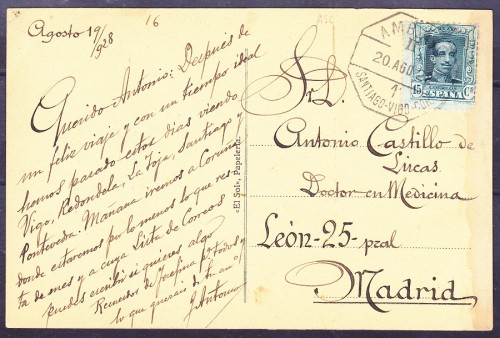 Agosto 19/928
16
Querido Antonio: Después de
un feliz viaje y con un tiempo ideal
hemos pasado estos días viendo
Vigo, Redondela, La Toja, Santiago y
Pontevedra. Mañana iremos a Coruña
donde estaremos por lo menos lo que res-
ta de mes y a cuya Lista de Correos
puedes escribir si quieres algo
Recuerdos de Josefina pª todos y
lo que querais de tu
Antonio
«El Sol», Papelería.
Sr. D.
Antonio Castillo de
Lucas
Doctor en Medicina
León-25-pral
Madrid
AMB
20 AGO
1
SANTIAGO-VIGO-
15 Cs
ESPAÑA